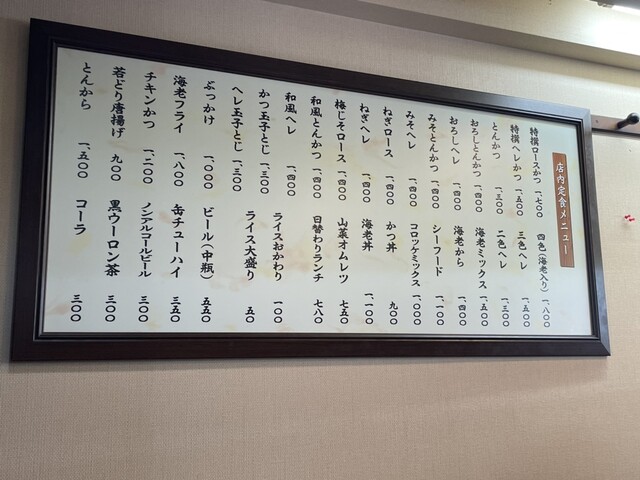 店内定食メニュー
特撰ロースかつ 一、七〇〇
特撰ヘレかつ 一、五〇〇
とんかつ 一、三〇〇
おろしとんかつ 一、四〇〇
おろしヘレ 一、四〇〇
みそとんかつ 一、四〇〇
みそヘレ 一、四〇〇
ねぎロース 一、四〇〇
ねぎヘレ 一、四〇〇
梅じそロース 一、四〇〇
和風とんかつ 一、四〇〇
和風ヘレ 一、四〇〇
かつ玉子とじ 一、三〇〇
ヘレ玉子とじ 一、三〇〇
ぶっかけ 一、〇〇〇
海老フライ 一、八〇〇
チキンかつ 一、二〇〇
若どり唐揚げ 九〇〇
とんから 一、五〇〇
四色(海老入り) 一、八〇〇
三色ヘレ 一、五〇〇
二色ヘレ 一、三〇〇
海老ミックス 一、五〇〇
海老から 一、四〇〇
シーフード 一、一〇〇
コロッケミックス 一、〇〇〇
かつ丼 九〇〇
海老丼 一、一〇〇
山菜オムレツ 七五〇
日替わりランチ 七八〇
ライスおかわり 一〇〇
ライス大盛り 五〇
ビール(中瓶) 五五〇
缶チューハイ 三五〇
ノンアルコールビール 三〇〇
黒ウーロン茶 三〇〇
コーラ 三〇〇